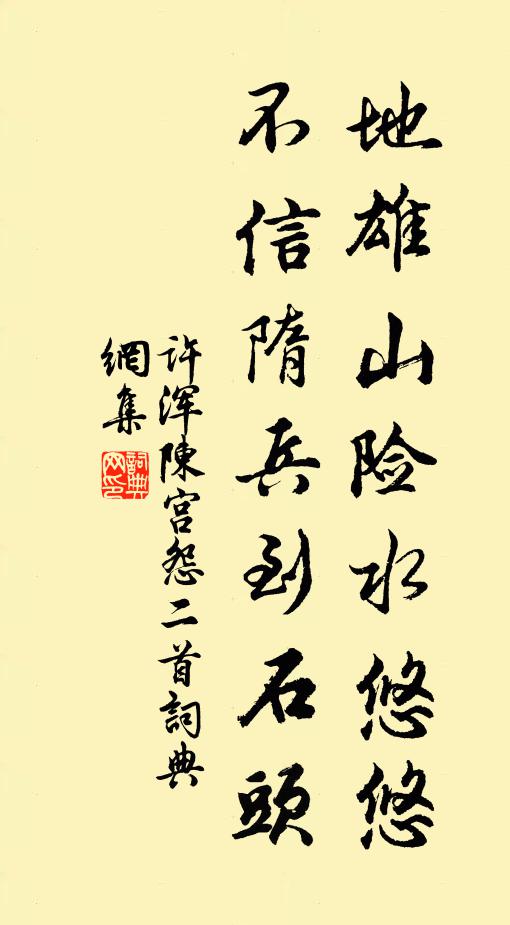 地雄山险水悠悠
不信隋兵到石頭
许浑陳宫怨二首詞典
網集
詞典网印